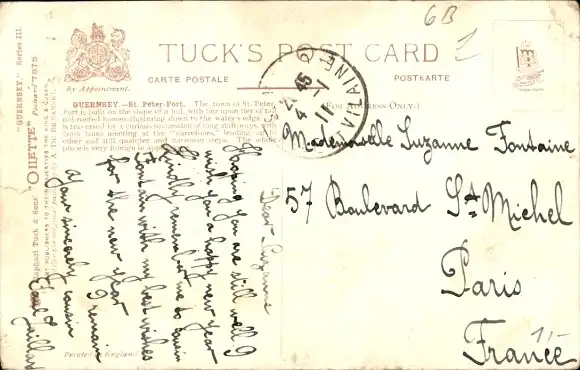 6B
1
TUCK'S POST CARD
CARTE POSTALE
POSTKARTE
By Appointment.
(FOR ADDRESS ONLY.)
"GUERNSEY" Series III.
"OILETTE" Postcard 7675
Raphael Tuck & Sons'
GUERNSEY.—St. Peter-Port. The town of St. Peter-
Port is built on the slope of a hill, with tier upon tier of tall
red-roofed houses clustering down to the water's edge.
is traversed by a curious succession of long stair-ways, with
open spaces meeting at the "carrefours," leading up to
other and still quainter and narrower steps. The whole
place is very foreign in
Dear Suzanne
Hoping you are still well I
wish you a happy new year
Kindly remember me to cousin
with my best wishes
for the new year
I remain
your sincerely cousin
Mademoiselle Suzanne Fontaine
57 Boulevard St Michel
Paris
France
1/-
Printed in England